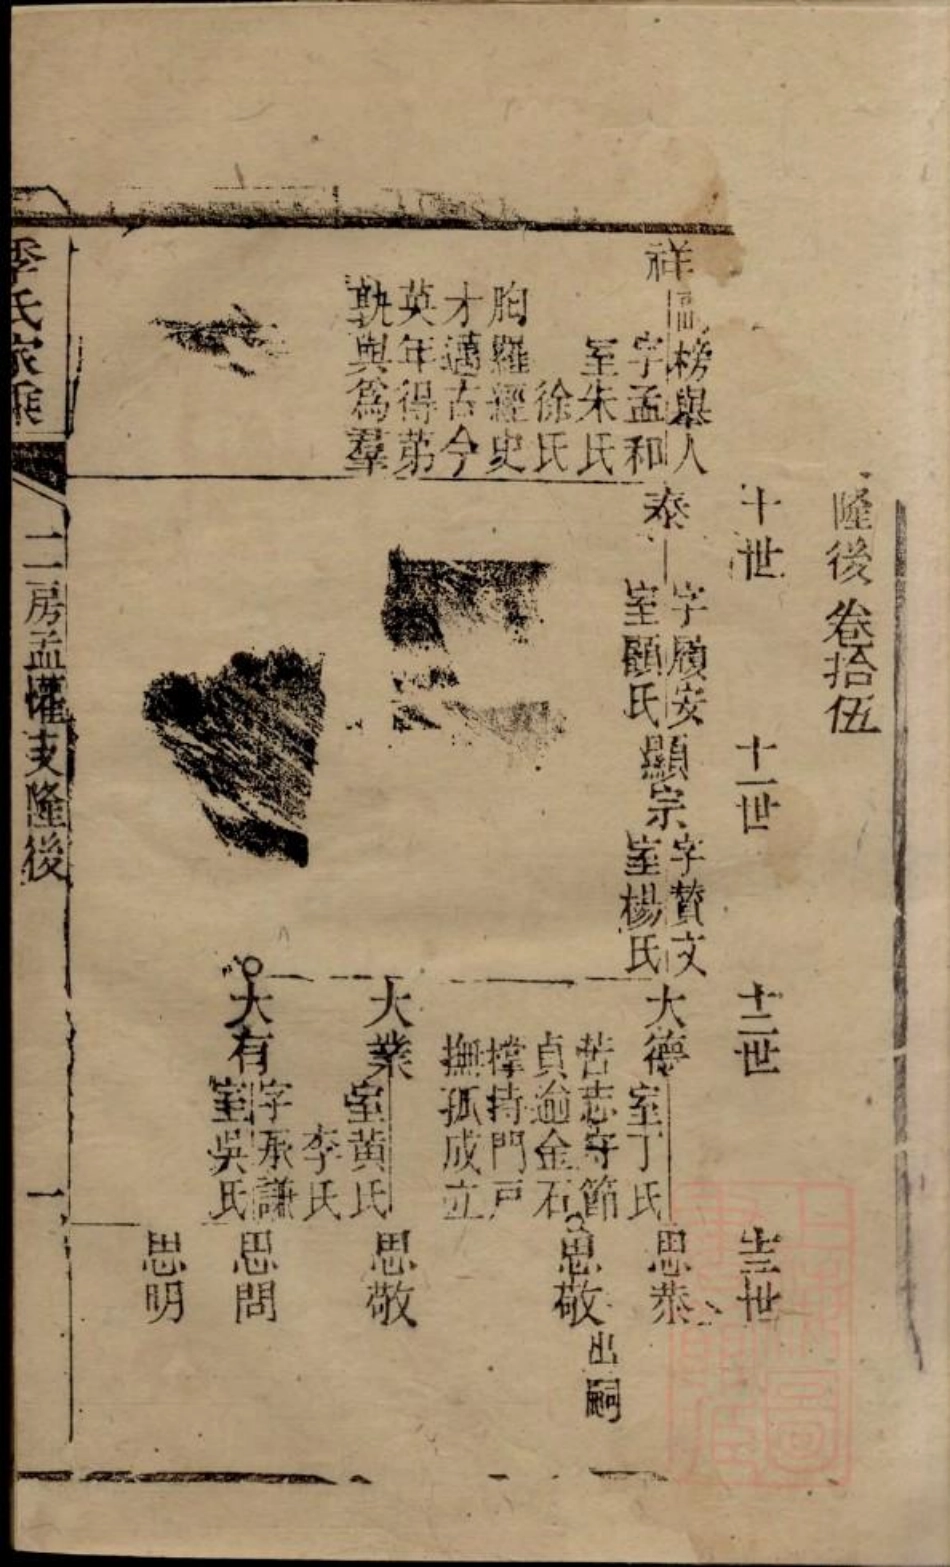 隆後 卷拾伍
十世
十一世
十二世
十三世
祥
榜舉人
字孟和
室朱氏
徐氏
胸羅經史
才邁古今
英年得第
孰與為羣
泰
字順安
室顧氏
顯宗
字贊文
室楊氏
大德
室丁氏
苦志守節
貞逾金石
撑持門戸
撫孤成立
大業
室黄氏
李氏
大有
字承謙
室吳氏
思恭
思敬
出嗣
思敬
思問
思明
季氏家乘
二房孟權支隆後
一